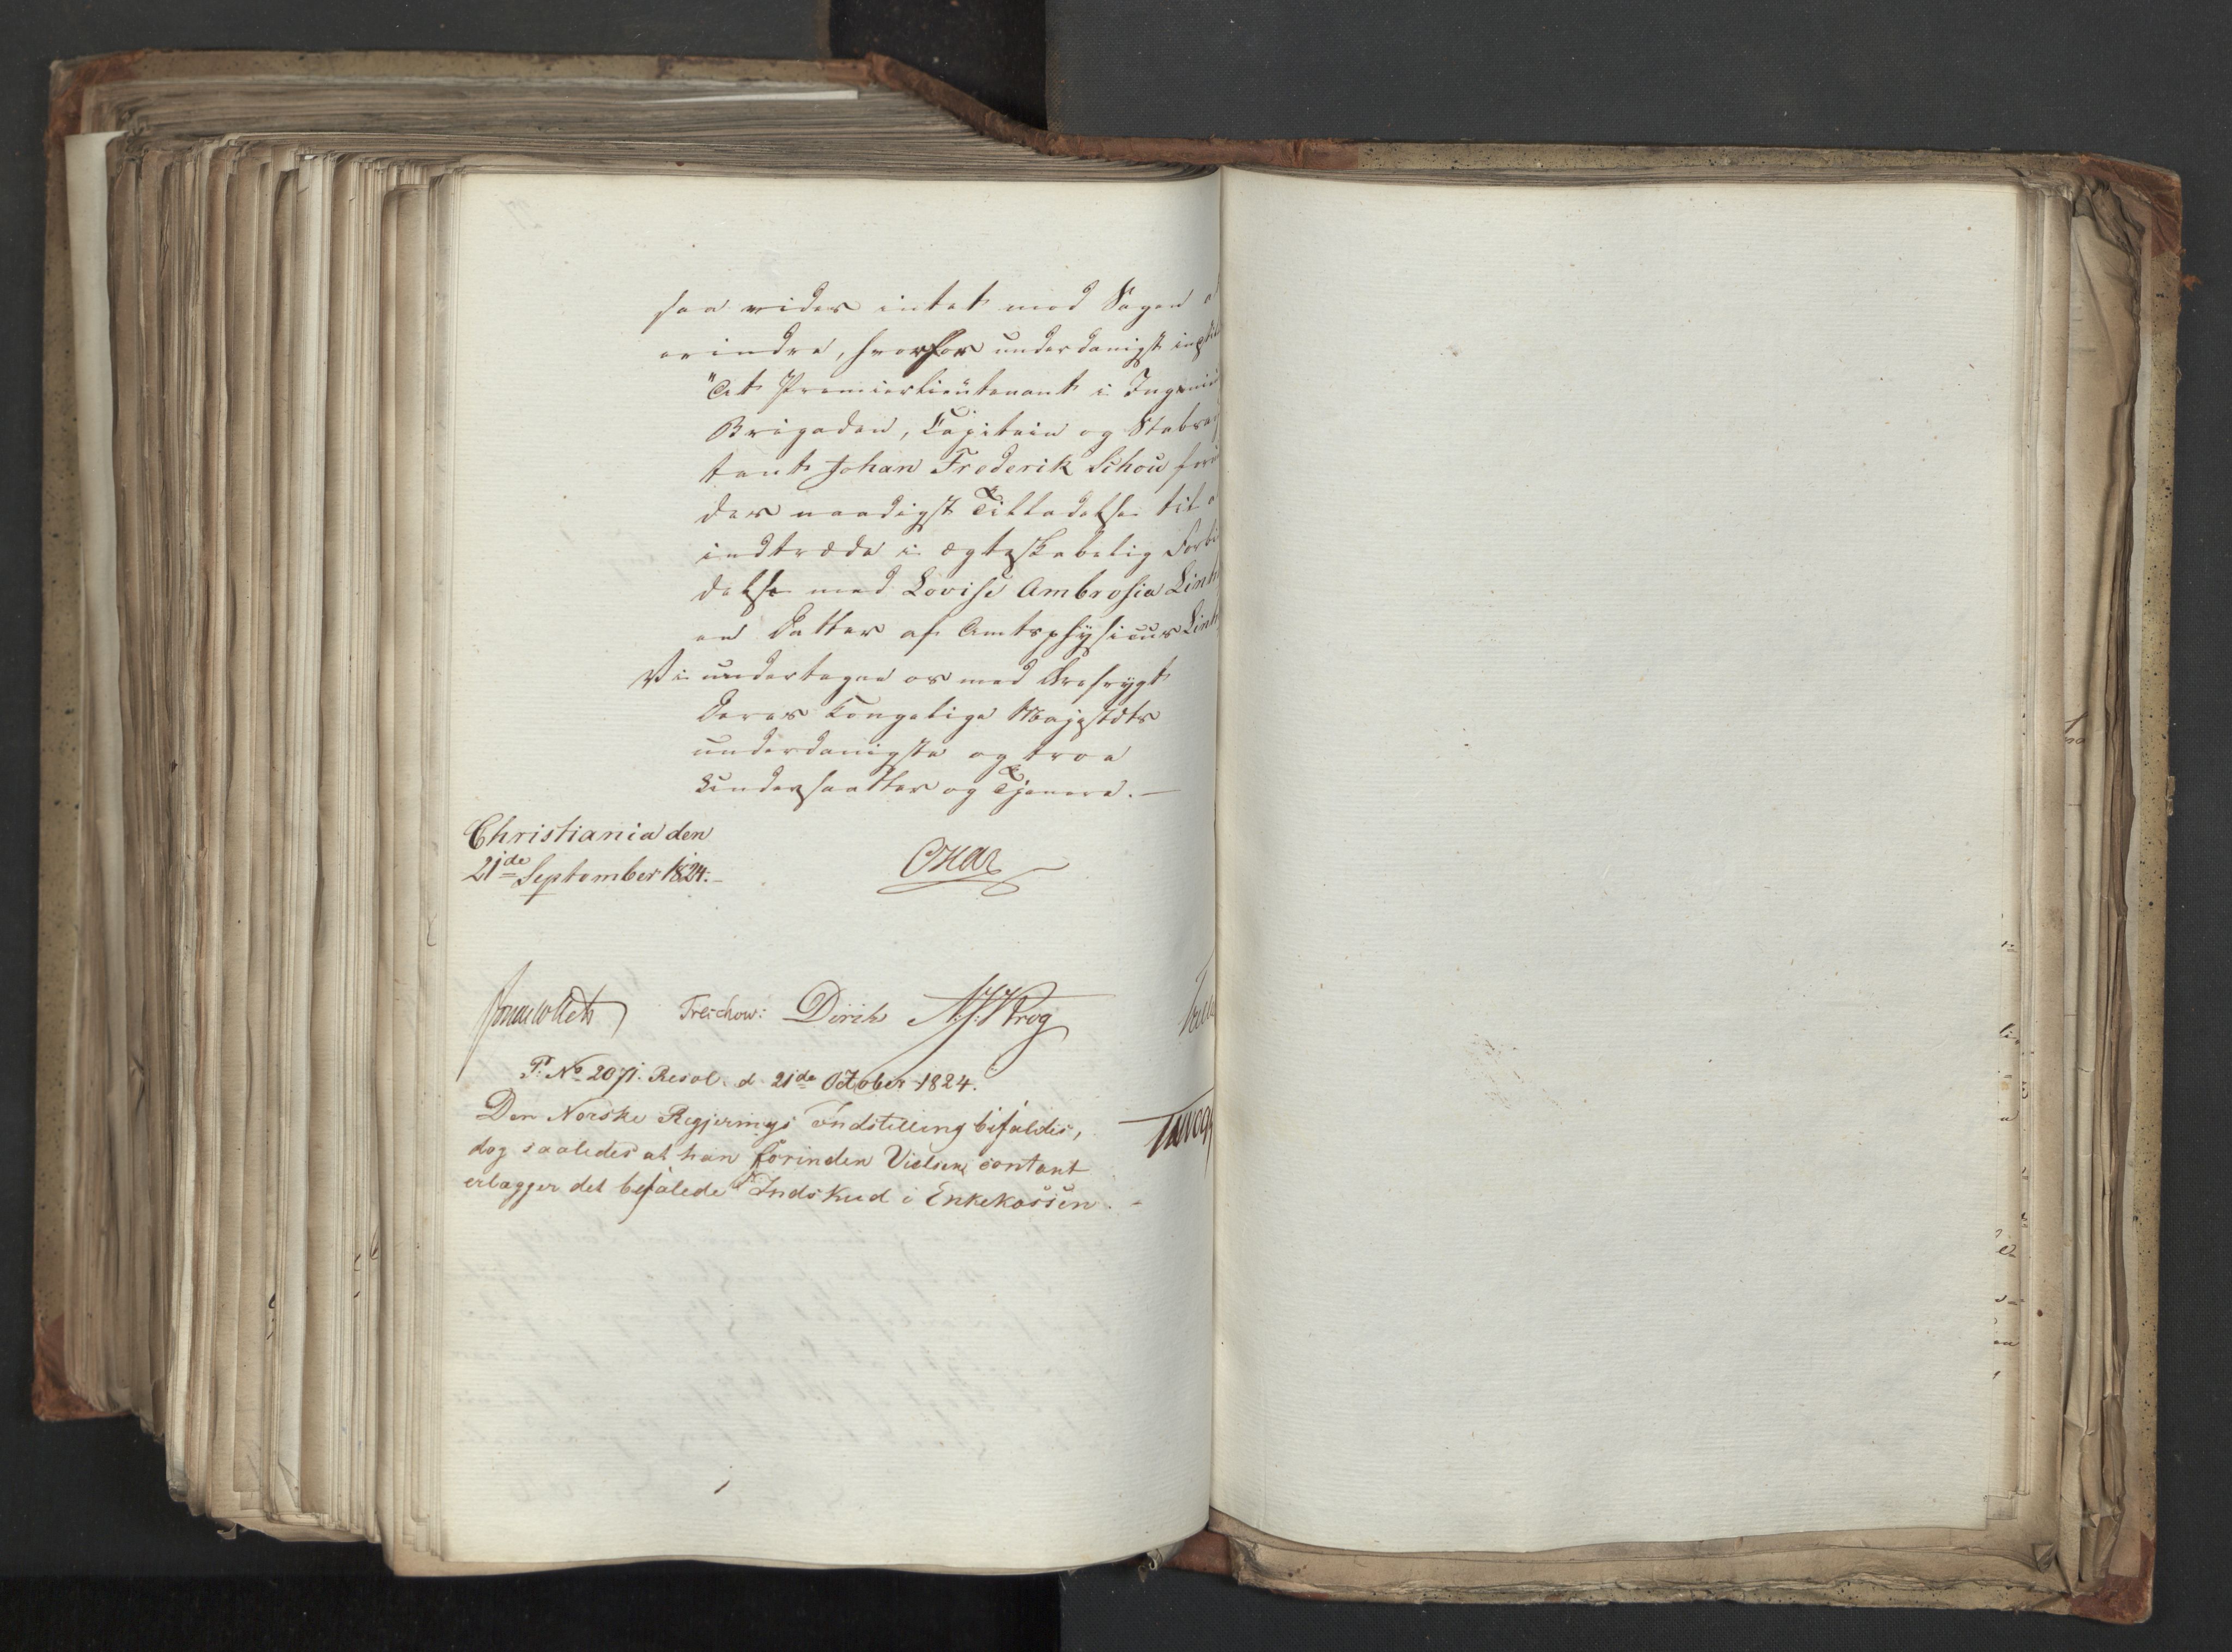 saa vides intet mod Sagen a
erindre, hvorfor underdanigst indstil
"At Premierlieutenant i Ingeni
Brigaden, Capitain og Stabsad
tant Johan Frederik Schou for
des naadigst Tilladelse til a
indtræde i ægteskabelig Forbi
delse med Lovise Ambrosia Linh
en Datter af Amtsphysicus Linh
Vi undertegne os med Ærefrygt
Deres Kongelige Majestæts
underdanigste og troe
Undersaatter og Tjenere.—
Christiania den
21de September 1824.–
Oscar
Jonas Collett Treschow: Diriks A. J. Krog
P: No 2071. Resol. d. 21de October 1824.
Den Norske Regjerings Indstilling bifaldes,
dog saaledes at han forinden Vielsen contant
erlægger det befalede Indskud i Enkekassen. –